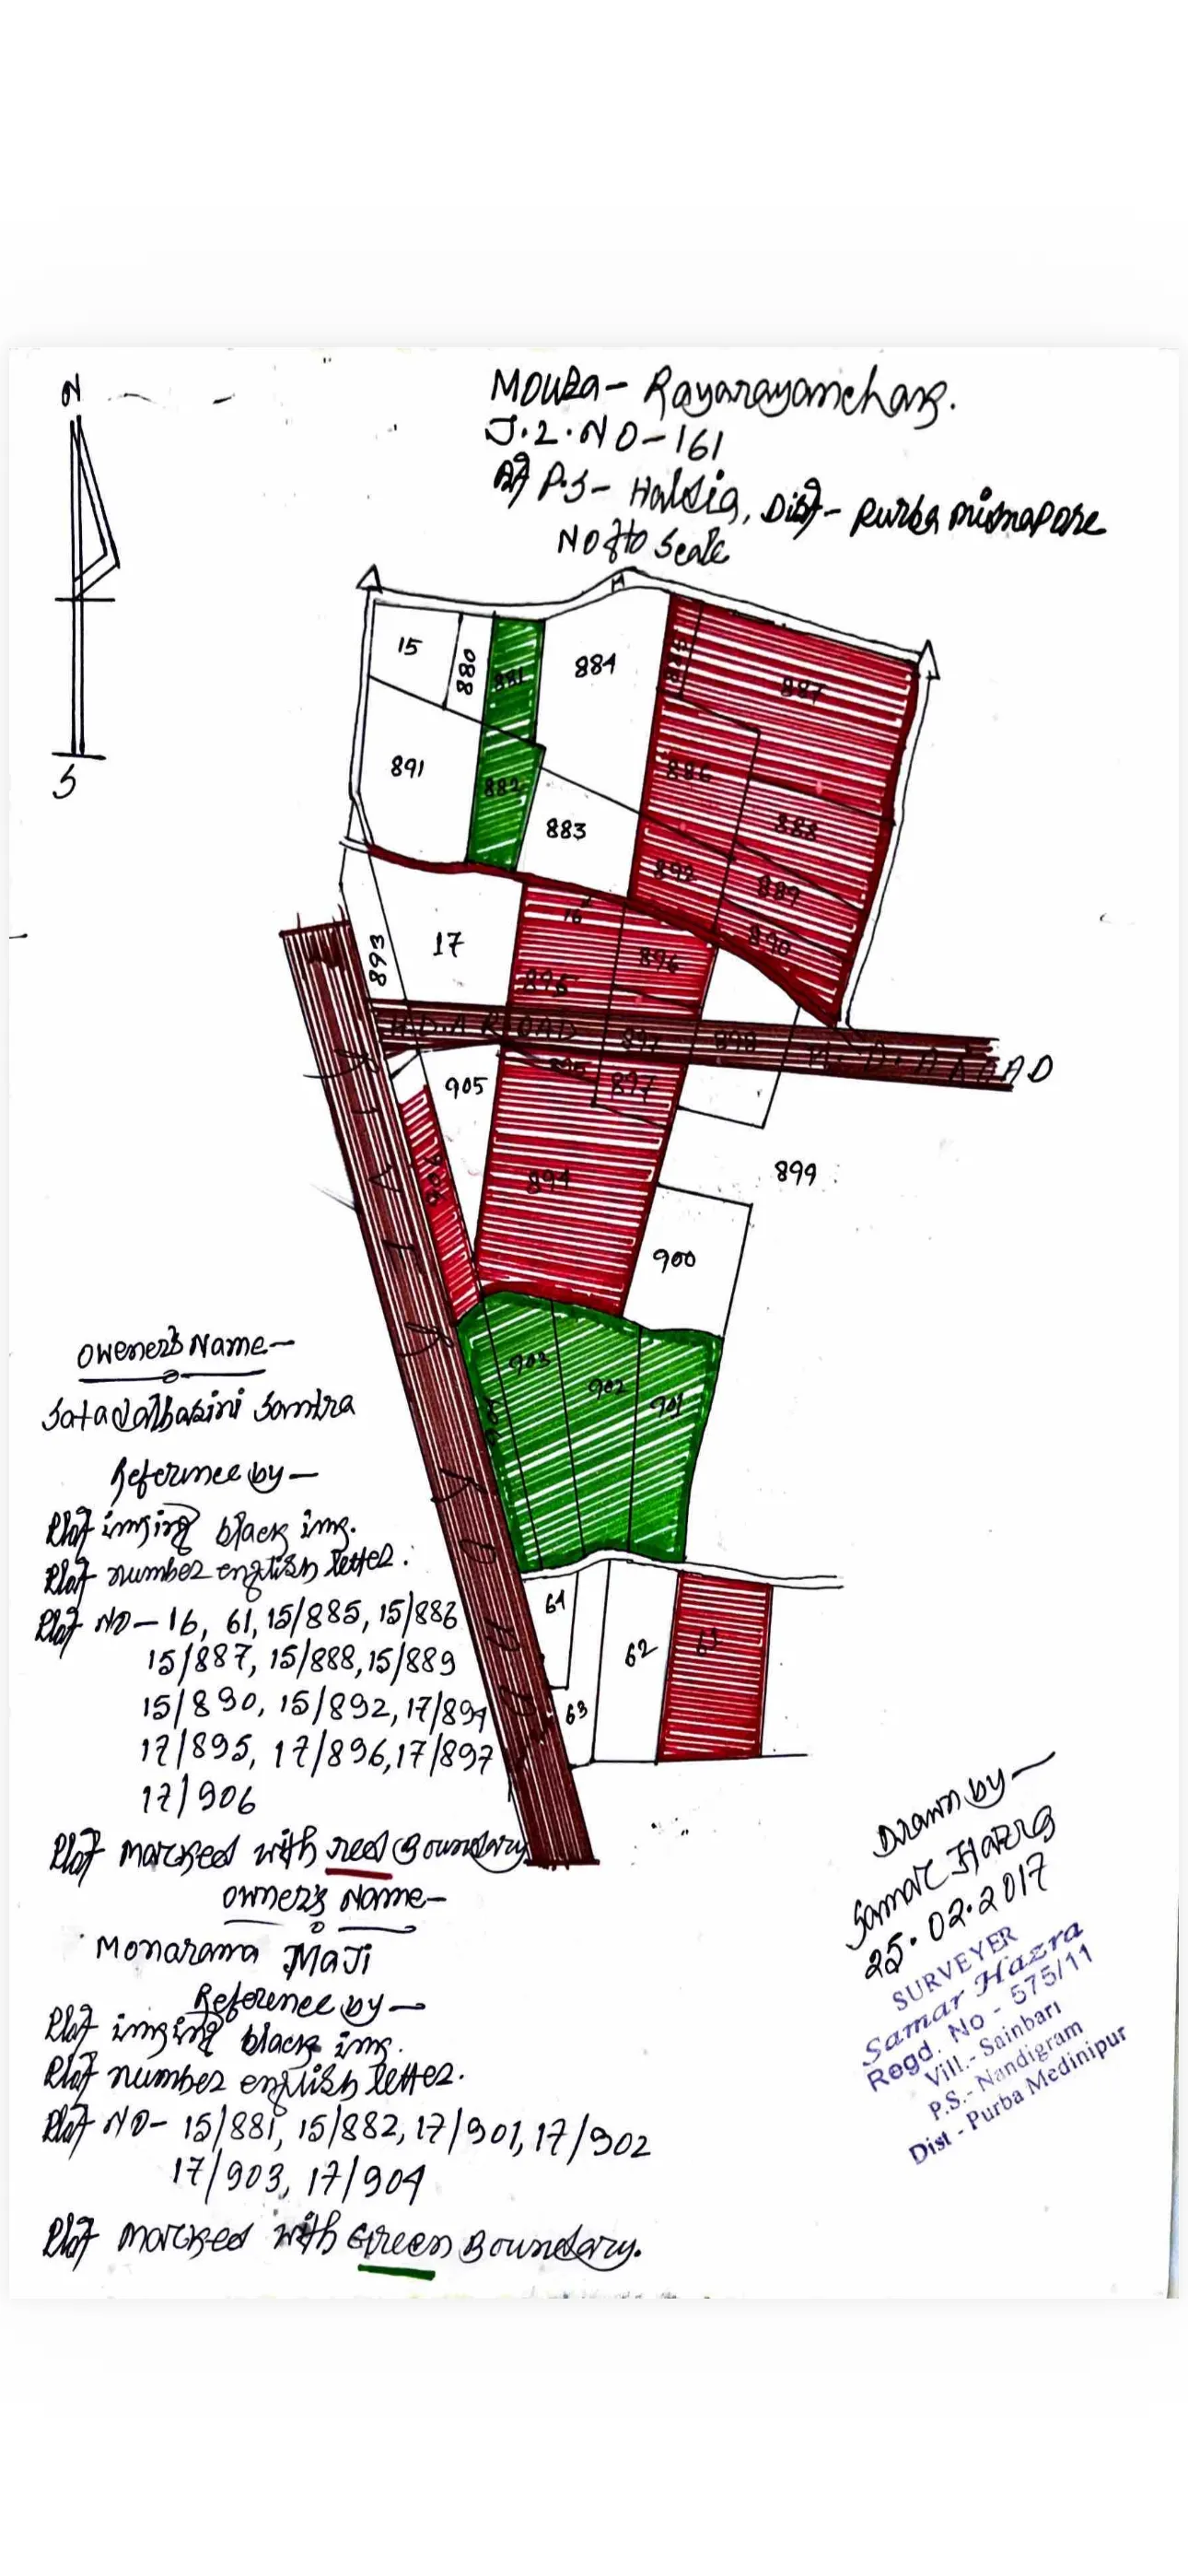 N
S
Mouza- Rayarayanchak.
J.L.NO-161
P.S- Haldia, Dist- Purba Midnapore
Not to Scale
15
880
881
884
885
887
891
882
883
886
888
892
889
890
893
17
16
895
896
H.D.A ROAD
897
898
H.D.A ROAD
905
895
897
899
906
894
900
RIVER
903
902
901
904
64
62
61
63
Owener's Name-
Satadalbasini Samtra
Reference by-
Plot black
Plot number english letter.
Plot NO-16, 61, 15/885, 15/886
15/887, 15/888, 15/889
15/890, 15/892, 17/894
17/895, 17/896, 17/897
17/906
Plot marcked with red Boundary
Owner's Name-
Monarama MaJi
Reference by-
Plot black
Plot number english letter.
Plot NO- 15/881, 15/882, 17/901, 17/902
17/903, 17/904
Plot marcked with Green Boundary.
Drawn by-
Samar Hazra
25.02.2017
SURVEYER
Samar Hazra
Regd. No - 575/11
Vill.- Sainbari
P.S.- Nandigram
Dist - Purba Medinipur